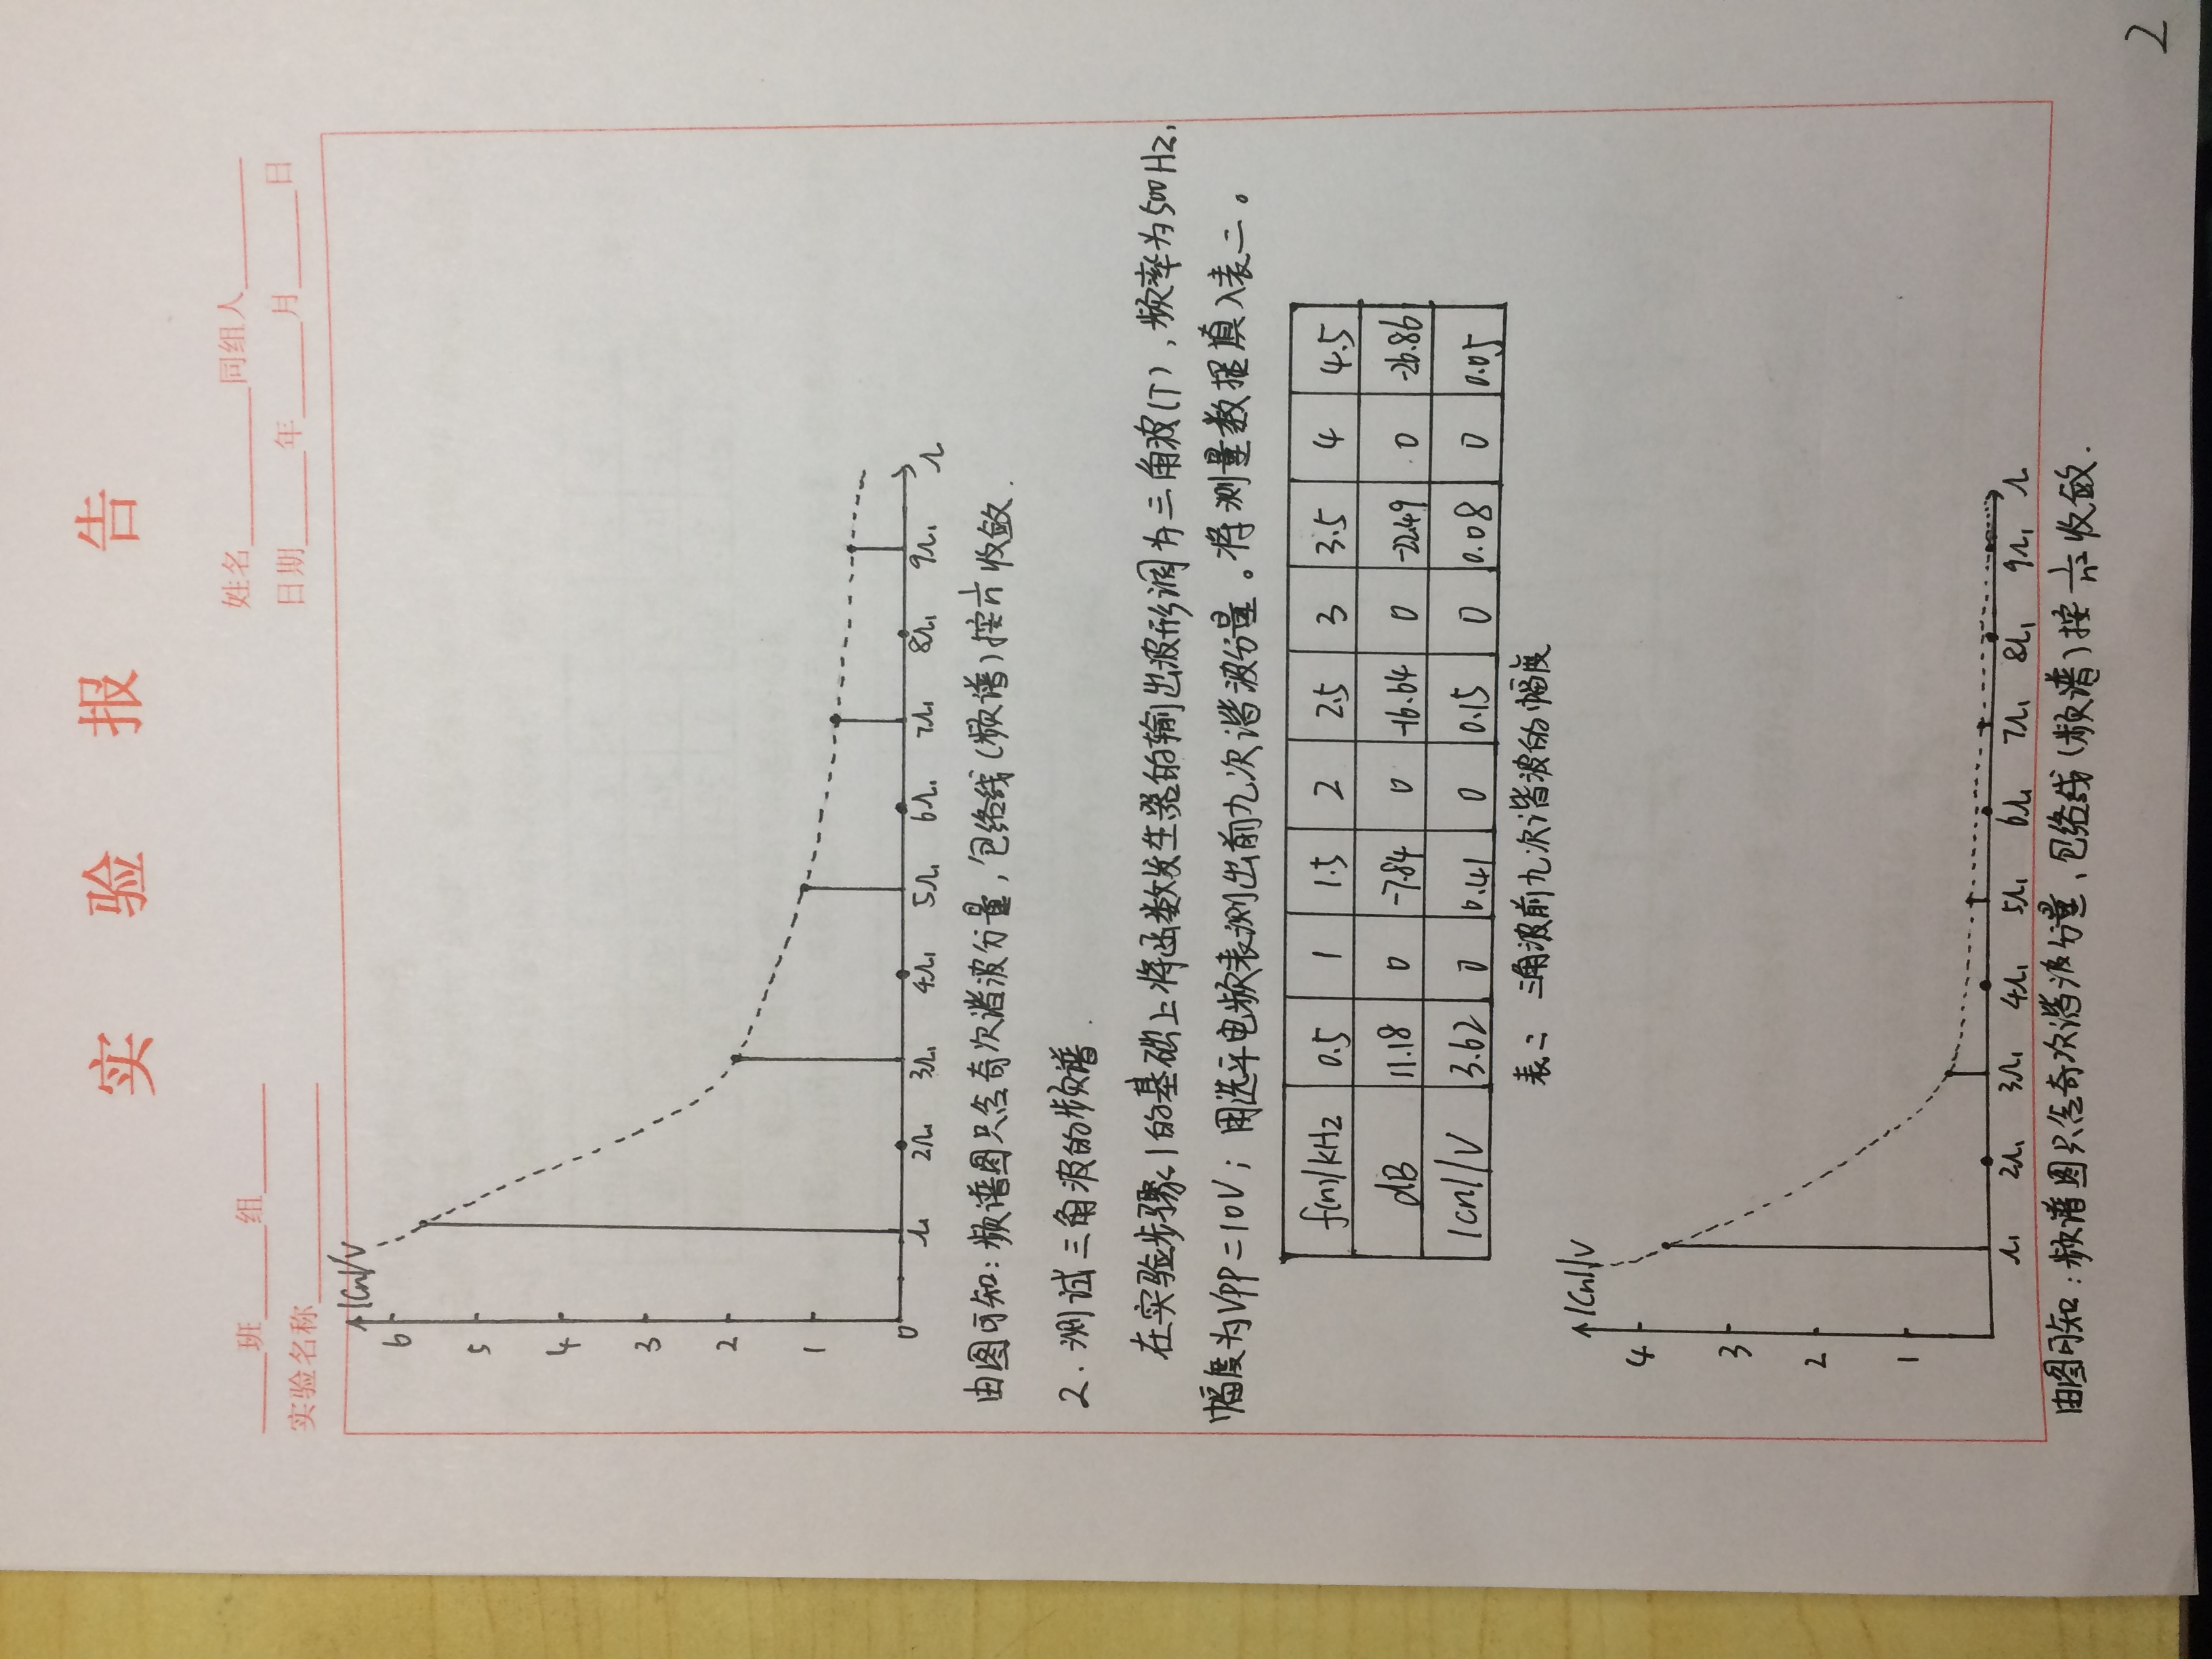 实 验 报 告
班 组 姓名 同组人
实验名称 日期 年 月 日
|Cn|/V
6
5
4
3
2
1
0 Ω₁ 2Ω₁ 3Ω₁ 4Ω₁ 5Ω₁ 6Ω₁ 7Ω₁ 8Ω₁ 9Ω₁ Ω
由图可知:频谱图只含奇次谐波分量,包络线(频谱)按1/n收敛.
2.测试三角波的频谱.
在实验步骤1的基础上将函数发生器的输出波形调为三角波(T),频率为500Hz,
幅度为VPP=10V;用选平电频表测出前九次谐波分量。将测量数据填入表二。
f(n)/kHz 0.5 1 1.5 2 2.5 3 3.5 4 4.5
dB 11.18 0 -7.84 0 -16.64 0 -22.49 0 -26.86
|cn|/V 3.62 0 0.41 0 0.15 0 0.08 0 0.05
表二 三角波前九次谐波的幅度
|Cn|/V
4
3
2
1
Ω₁ 2Ω₁ 3Ω₁ 4Ω₁ 5Ω₁ 6Ω₁ 7Ω₁ 8Ω₁ 9Ω₁ Ω
由图可知:频谱图只含奇次谐波分量,包络线(频谱)按1/n²收敛.
2